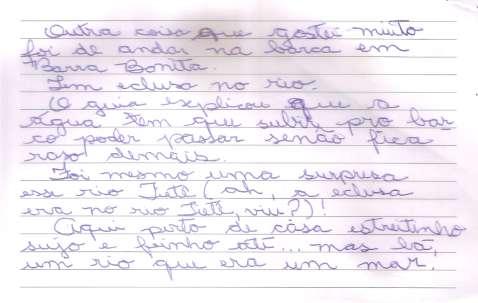 Outra coisa que gostei muito
foi de andar na barca em
Barra Bonita.
Tem eclusa no rio.
O guia explicou que a
água tem que subir pro bar-
co poder passar senão fica
raso demais.
Foi mesmo uma surpresa
esse rio Tietê (ah, a eclusa
era no rio Tietê, viu?)!
Aqui perto de casa estreitinho
sujo e feinho até... mas lá,
um rio que era um mar.